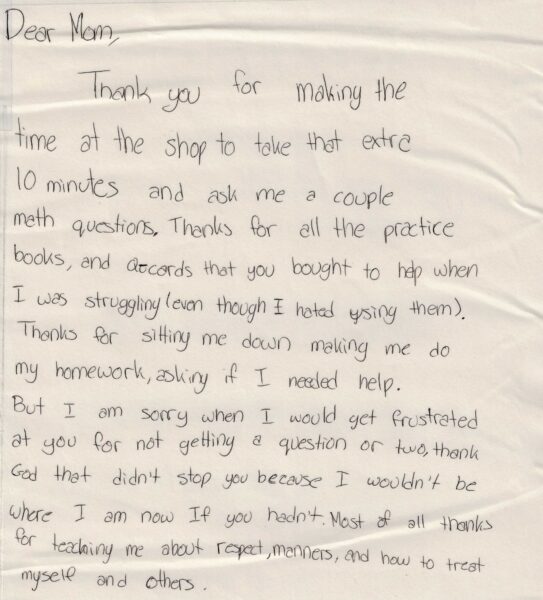 Dear Mom,
Thank you for making the
time at the shop to take that extra
10 minutes and ask me a couple
math questions. Thanks for all the practice
books, and accords that you bought to help when
I was struggling (even though I hated using them).
Thanks for sitting me down making me do
my homework, asking if I needed help.
But I am sorry when I would get frustrated
at you for not getting a question or two, thank
God that didn't stop you because I wouldn't be
where I am now If you hadn't. Most of all thanks
for teaching me about respect, manners, and how to treat
myself and others.